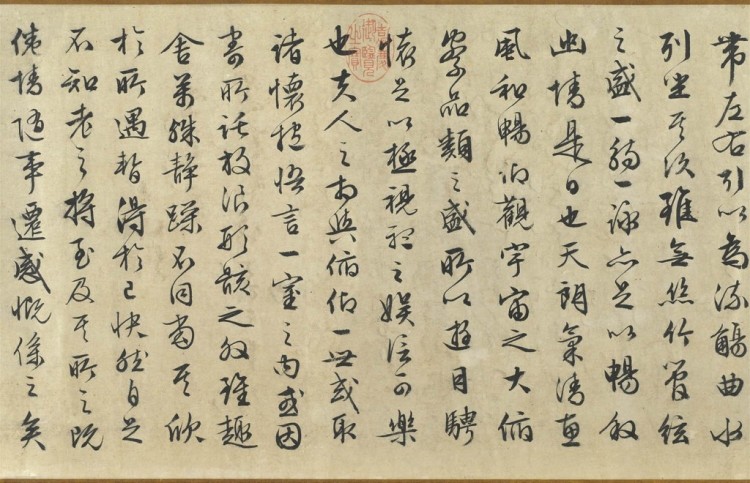 帶左右引以為流觴曲水
列坐其次雖無絲竹管絃
之盛一觴一詠亦足以暢敘
幽情是日也天朗氣清惠
風和暢仰觀宇宙之大俯
察品類之盛所以遊目騁
懷足以極視聽之娛信可樂
也夫人之相與俯仰一世或取
諸懷抱悟言一室之內或因
寄所託放浪形骸之外雖趣
舍萬殊靜躁不同當其欣
於所遇暫得於己快然自足
不知老之將至及其所之既
倦情隨事遷感慨係之矣